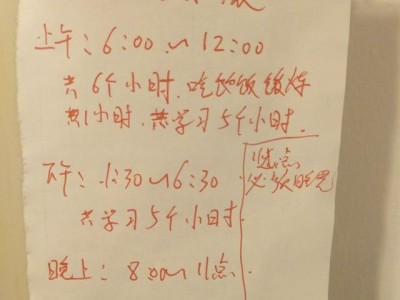 上午：6:00~12:00
共6个小时.吃饭饭锻炼
共1小时.共学习5个小时.
下午：1:30~6:30
共学习5个小时.
11点
必须睡觉
晚上：8:00~11点.